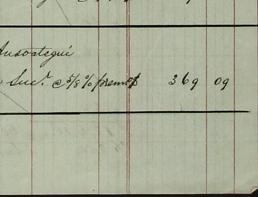 Ansoategui
Sucr. @ 5/8 % prem $ 369 09